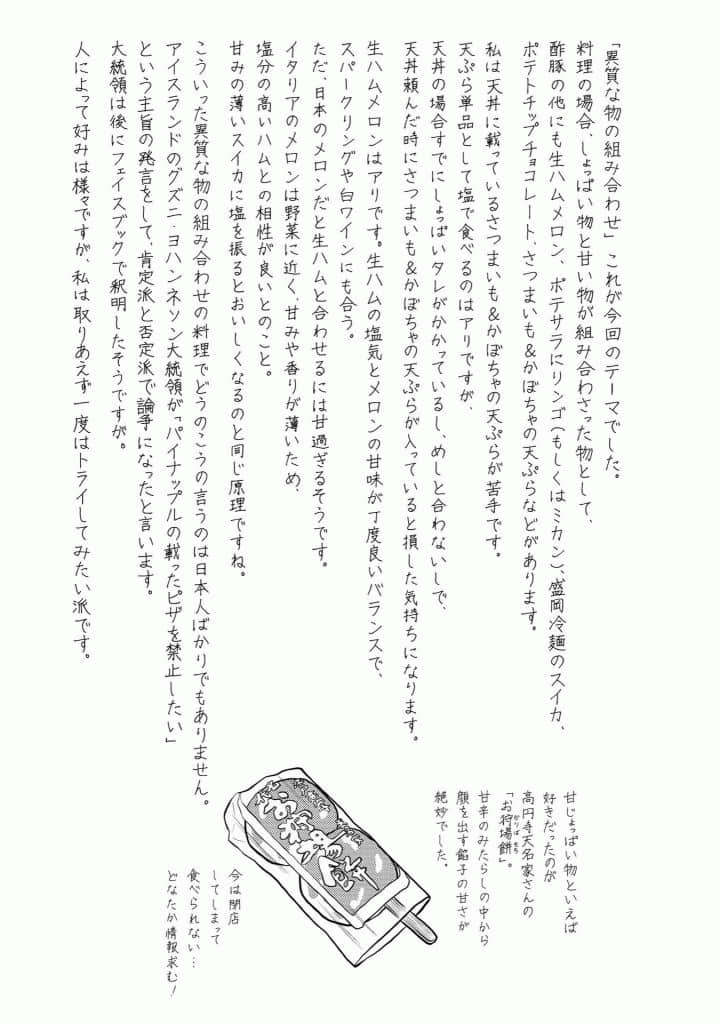 「異質な物の組み合わせ」これが今回のテーマでした。
料理の場合、しょっぱい物と甘い物が組み合わさった物として、
酢豚の他にも生ハムメロン、ポテサラにリンゴ(もしくはミカン)、盛岡冷麺のスイカ、
ポテトチップチョコレート、さつまいも&かぼちゃの天ぷらなどがあります。
私は天丼に載っているさつまいも&かぼちゃの天ぷらが苦手です。
天ぷら単品として塩で食べるのはアリですが、
天丼の場合すでにしょっぱいタレがかかっているし、めしと合わないしで、
天丼頼んだ時にさつまいも&かぼちゃの天ぷらが入っていると損した気持ちになります。
生ハムメロンはアリです。生ハムの塩気とメロンの甘味が丁度良いバランスで、
スパークリングや白ワインにも合う。
ただ、日本のメロンだと生ハムと合わせるには甘過ぎるそうです。
イタリアのメロンは野菜に近く、甘みや香りが薄いため、
塩分の高いハムとの相性が良いとのこと。
甘みの薄いスイカに塩を振るとおいしくなるのと同じ原理ですね。
こういった異質な物の組み合わせの料理でどうのこうの言うのは日本人ばかりでもありません。
アイスランドのグズニ・ヨハンネソン大統領が「パイナップルの載ったピザを禁止したい」
という主旨の発言をして、肯定派と否定派で論争になったと言います。
大統領は後にフェイスブックで釈明したそうですが。
人によって好みは様々ですが、私は取りあえず一度はトライしてみたい派です。
甘じょっぱい物といえば
好きだったのが
高円寺天名家さんの
「お狩場餅」。
かりばもち
甘辛のみたらしの中から
顔を出す餡子の甘さが
絶妙でした。
お狩場餅
今は閉店
してしまって
食べられない…
どなたか情報求む!